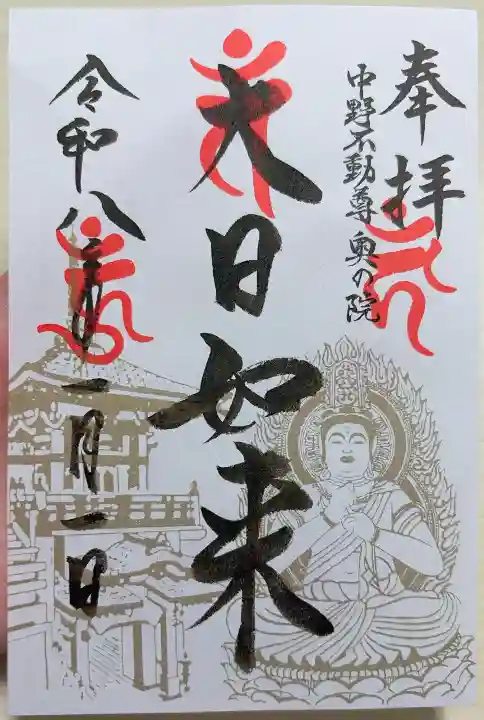 奉拝
中野不動尊奥の院
大日如来
令和八年一月一日